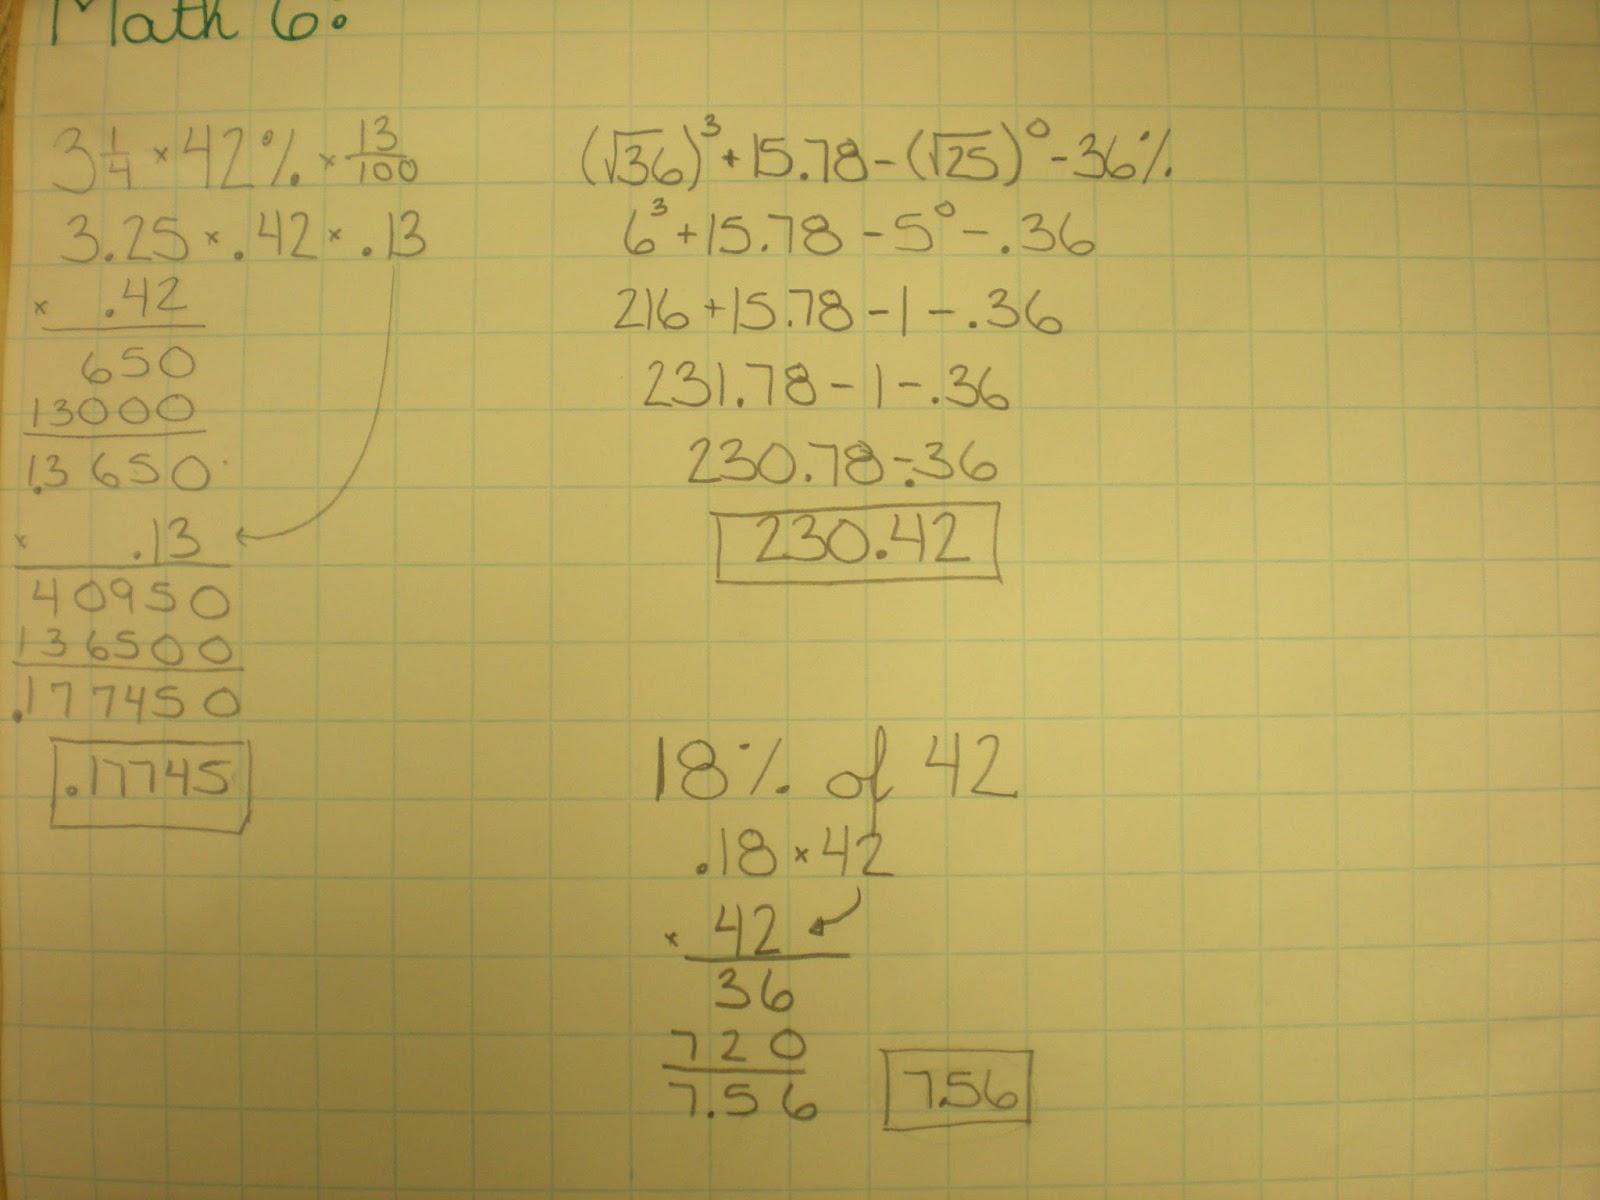 Math 6:
3 1/4 × 42% × 13/100
3.25 × .42 × .13
× .42
650
13000
1.3650
× .13
40950
136500
.177450
.17745
(√36)³ + 15.78 - (√25)⁰ - 36%
6³ + 15.78 - 5⁰ - .36
216 + 15.78 - 1 - .36
231.78 - 1 - .36
230.78 - .36
230.42
18% of 42
.18 × 42
× 42
36
720
7.56
7.56